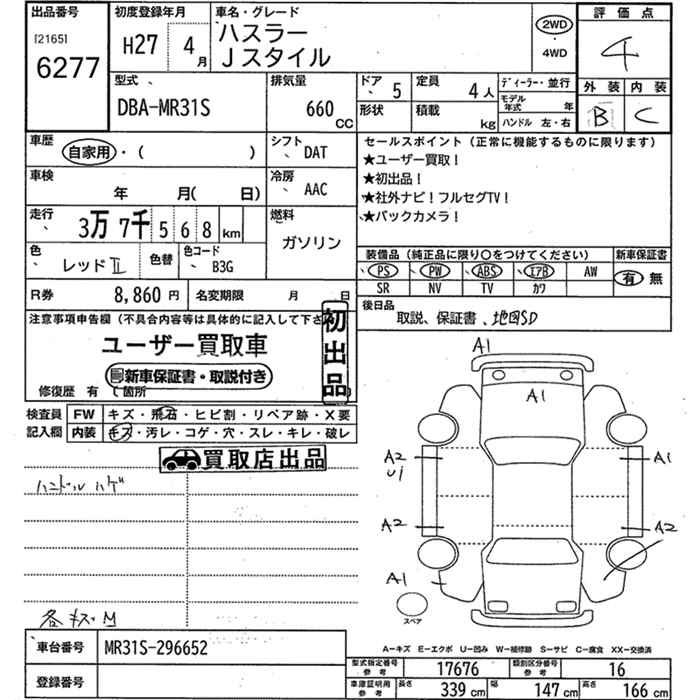 出品番号
[2165]
6277
初度登録年月
H27 4月
車名・グレード
ハスラー
Jスタイル
2WD
・
4WD
評価点
4
外装 内装
B C
型式
DBA-MR31S
排気量
660 CC
ドア 5
定員 4人
ディーラー・並行
形状
積載 kg
モデル年式 年
ハンドル 左・右
車歴
自家用・( )
シフト DAT
車検
年 月( 日)
冷房 AAC
走行
3万 7千 5 6 8 km
燃料
ガソリン
色
レッドII
色替
色コード
B3G
R券 8,860円
名変期限 月 日
セールスポイント(正常に機能するものに限ります)
★ユーザー買取!
★初出品!
★社外ナビ!フルセグTV!
★バックカメラ!
装備品(純正品に限り○をつけてください)
新車保証書
PS PW ABS エアB AW
SR NV TV カワ
有 無
後日品
取説、保証書、地図SD
注意事項申告欄(不具合内容等は具体的に記入して下さ
初出品
ユーザー買取車
新車保証書・取説付き
修復歴 有 ( 箇所
検査員記入欄
FW キズ・飛石・ヒビ割・リペア跡・X要
内装 キズ・汚レ・コゲ・穴・スレ・キレ・破レ
買取店出品
ハンドル ハゲ
各キズ・M
A1
A1
A2
U1
A1
A2
A2
A1
スペア
車台番号 MR31S-296652
登録番号
A-キズ E-エクボ U-凹み W-補修跡 S-サビ C-腐食 XX-交換済
型式指定番号 参考 17676
類別区分番号 参考 16
車庫証明用 参考
長さ 339 cm
幅 147 cm
高さ 166 cm